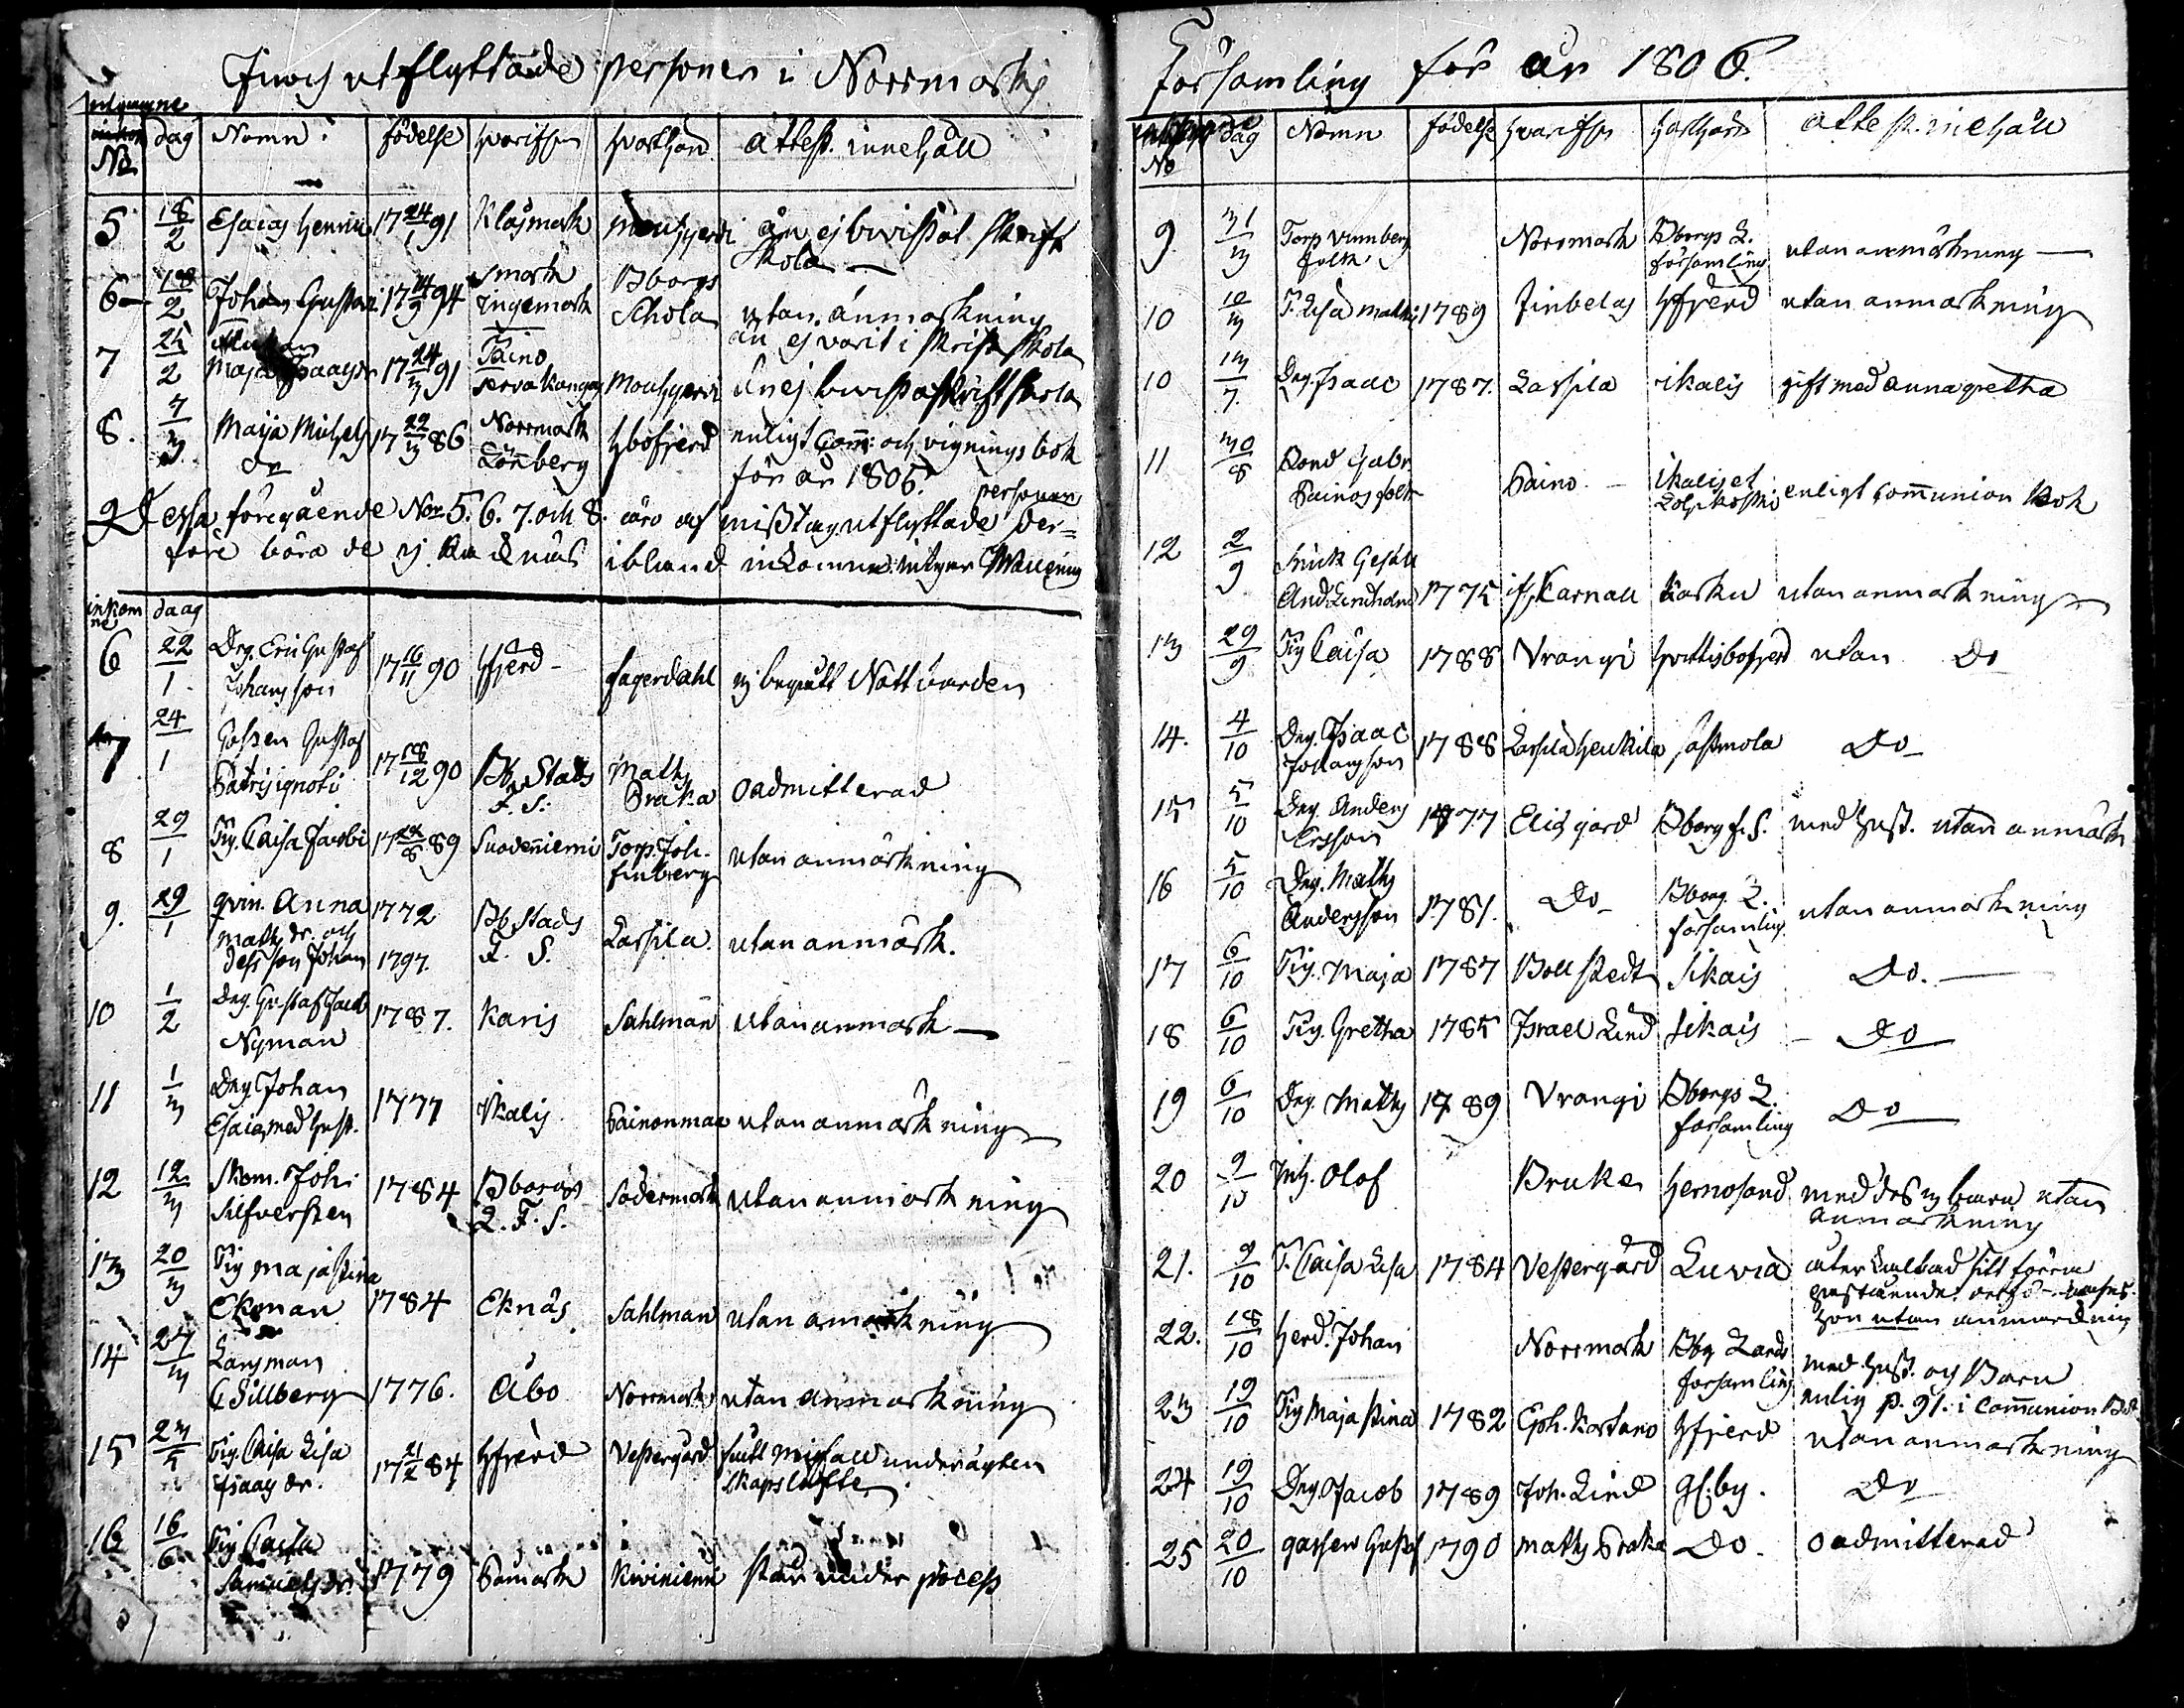 In och utflyttade personer i Norrmarks
utgångne
No dag Namn födelse hvarifrån hvarthän attest. innehåll
5 18/2 Esaias Henric 17 24/1 91 Klåsmark
än ej bevistat Skrift
Skola
6 18/2 Johan Gustav 17 14/9 94 Smark
Ingemark Bborgs
Schola utan anmärkning
än ej varit i Skrift Skola
7 25/2 Maja Isaacsdr 17 24/3 91 Paino
än ej bevistat Skriftskola
8. 7/3 Maija Michels
dr 17 22/3 86 Norrmark
Lönnberg Hbofjerd enligt Com: och vignings bok
för år 1805.
Dessa föregående Nor 5. 6. 7. och 8. äro af misstag utflyttade personer der=
före böra de ej ibland inkomne
inkom
ne daag
6 22/1 Drg. Eric Gustaf
Johansson 17 16/11 90 Hfjerd fagerdahl ej begått Nattvarden
7 24/1 Gossen Gustaf
17 18/12 90 Bb. Stads
F. S. Maths
Braka oadmitterad
8 29/1 Pig. Caisa Jacobi 17 24/8 89 Suodenniemi Torp. Joh.
finberg utan anmärkning
9. 29/1 qvin. Anna
Maths dr. och
dess son Johan 1772
1797. Bb Stads
F. S. Lassila utan anmärk.
10 1/2 Drg. Gustaf Jacob
Nyman 1787. Karis Sahlman utan anmärk
11 1/3 Drg. Johan
Esaias med hust. 1777 Ikalis Painonmaa utan anmärkning
12 12/3 Skom. Joh.
Silfversten 1784 Bborgs
L. F. S. Södermark utan anmärkning
13 20/3 Pig Maja Stina
Ekman 1784 Eknäs Sahlman utan anmärkning
14 27/3 Länsman
C Sillberg 1776. Åbo Norrmark utan anmärkning
15 23/5 Pig. Caisa Lisa
Isaacs dr. 17 21/2 84 Hfjerd Vestergård under ägten
skaps löfte
16 16/6 Pig. Caisa
Samuelsdr 1779 Påmark Kiviniemi står under process
Församling för år 1806.
utgångne
No dag Namn födelse hvarifrån hvarthän attest. inehåll
9. 31/3 Torp vinnberg
folk Norrmark Bborgs L.
församling utan anmärkning
10 10/3 P. Lisa Maths 1789 finbelas Hfjerd utan anmärkning
10 13/7. Drg. Isaac 1787. Lassila ikalis gift med anna gretha
11 30/8 Bond Gabr.
Painos folk Paino ikalis et
enligt Communion Bok
12 2/9 Smick Gesäll
And Lindholm 1775 Karnall Karku utan anmärkning
13 29/9 Pig Caisa 1788 Vrangi Hvittisbofjerd utan Do
14. 4/10 Drg. Isaac
Johansson 1788 Lassila Heickila sastmola Do
15 5/10 Drg. Anders
Ersson 1777 Elisgård Bborg f. S. med hust. utan anmärk
16 5/10 Drg. Maths
Andersson 1781. Do Bborg. L.
församling utan anmärkning
17 6/10 Pig. Maja 1787 Bollstedt sikais Do.
18 6/10 Pig. Gretha 1785 Israel Lind sikais Do
19 6/10 Drg. Maths 1789 Vrangi Bborgs L.
församling Do
20 9/10 Inh. Olof Bruket Hernosand med dess barn utan
anmärkning
21. 9/10 P. Caisa Lisa 1784 Vestergård Luvia
hon utan anmärkning
22. 18/10 Herd. Johan Norrmark Bbg Lands
församling med hust. och Barn
enlig p. 91. i Communion Bok
23 19/10 Pig Maja Stina 1782 Eph. Kortano Hfjerd utan anmärkning
24 19/10 Drg. Jacob 1789 Joh. Lind Gl:by. Do
25 20/10 gossen Gustaf 1790 maths Braka Do oadmitterad